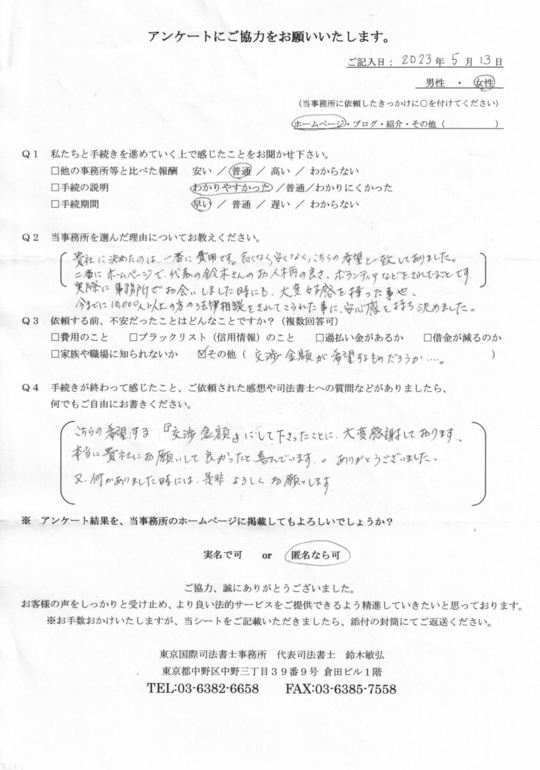 アンケートにご協力をお願いいたします。
ご記入日：2023年5月13日
男性 ・ 女性
（当事務所に依頼したきっかけに○を付けてください）
ホームページ・ブログ・紹介・その他（　　　　　）
Q1 私たちと手続きを進めていく上で感じたことをお聞かせ下さい。
□他の事務所等と比べた報酬 安い ／ 普通 ／ 高い ／ わからない
□手続の説明 わかりやすかった ／普通／わかりにくかった
□手続期間 早い ／ 普通 ／ 遅い ／ わからない
Q2 当事務所を選んだ理由についてお教えください。
貴社に決めたのは、一番に費用です。高くなく安くなく、こちらの希望と一致しておりました。
二番にホームページで、代表の鈴木さんのお人柄の良さ、ボランティアなどをされてることです。
実際に事務所でお会いしました時にも、大変好感を持った事や、
今までに10,000人以上の方の法律相談をされてこられた事に、安心感を持ち決めました。
Q3 依頼する前、不安だったことはどんなことですか？（複数回答可）
□費用のこと □ブラックリスト（信用情報）のこと □過払い金があるか □借金が減るのか
□家族や職場に知られないか ☑その他（ 交渉金額が希望するものだろうか…。 ）
Q4 手続きが終わって感じたこと、ご依頼された感想や司法書士への質問などがありましたら、
何でもご自由にお書きください。
こちらの希望する『交渉金額』にして下さったことに、大変感謝しております、
本当に貴社にお願いして良かったと喜んでいます。。ありがとうございました。
又、何かありました時には、是非よろしくお願いします。
※ アンケート結果を、当事務所のホームページに掲載してもよろしいでしょうか？
実名で可 or 匿名なら可
ご協力、誠にありがとうございました。
お客様の声をしっかりと受け止め、より良い法的サービスをご提供できるよう精進していきたいと思っております。
※お手数おかけいたしますが、当シートをご記載いただきましたら、添付の封筒にてご返送ください。
東京国際司法書士事務所 代表司法書士 鈴木敏弘
東京都中野区中野三丁目３９番９号 倉田ビル１階
TEL:03-6382-6658 FAX:03-6385-7558